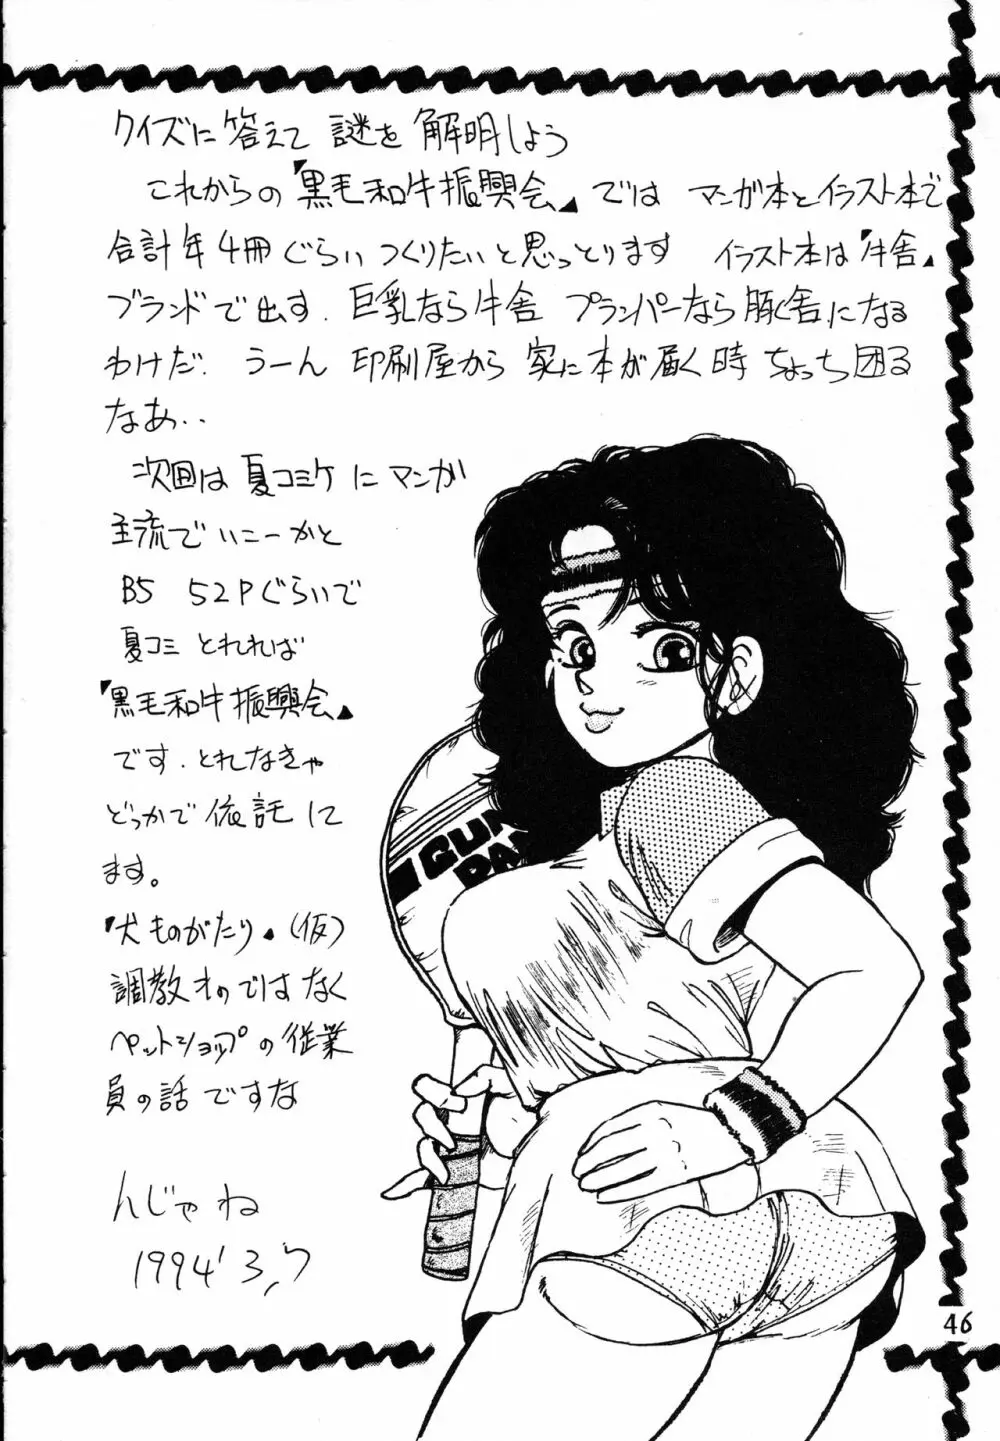 クイズに答えて 謎を 解明しよう
これからの「黒毛和牛振興会」では マンガ本とイラスト本で
合計年4冊ぐらい つくりたいと思っとります イラスト本は「牛舎」
ブランドで出す. 巨乳なら牛舎 プランパーなら豚舎になる
わけだ. うーん 印刷屋から 家に本が届く時 ちょっち困る
なあ..
次回は 夏コミケ に マンガ
主流でいこーかと
B5 52Pぐらいで
夏コミ とれれば
「黒毛和牛振興会」
です. とれなきゃ
どっかで 依託して
ます。
「犬ものがたり」(仮)
調教ものではなく
ペットショップの従業
員の話ですな
んじゃね
1994' 3,7
46